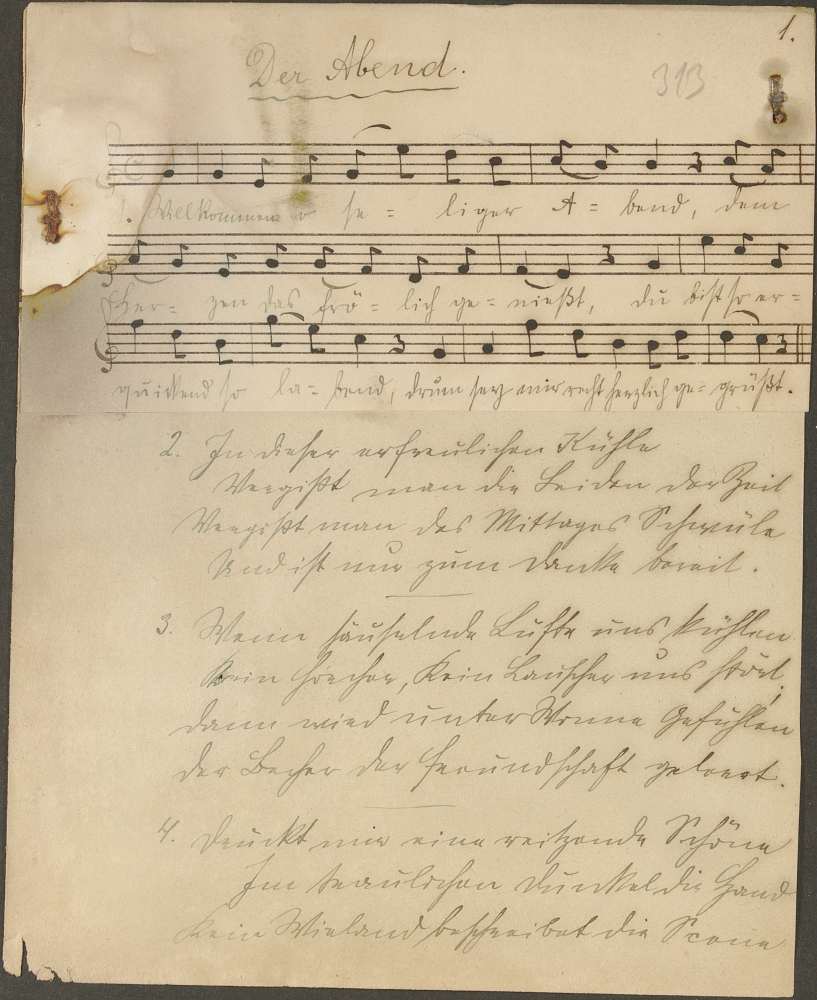 1.
Der Abend.
313
1. Willkommen o se = liger A = bend, dem
Her = zen das frö = lich ge = nießt, du bist so er =
quickend so la = bend, drum sey mir recht herzlich ge = grüßt.
2. In dieser erfreulichen Kühle
Vergißt man die Leiden der Zeit
Vergißt man des Mittages Schwüle
Und ist nur zum Danke bereit.
3. Wenn säuselnde Lüfte uns kühlen
Kein Horcher, Kein Lauscher uns stört,
dann wird unter Wonne Gefühlen
der Becher der Freundschaft geleert.
4. Drückt mir eine reitzende Schöne
Im traulichen Dunkel die Hand
Kein Wieland beschreibet die Scene